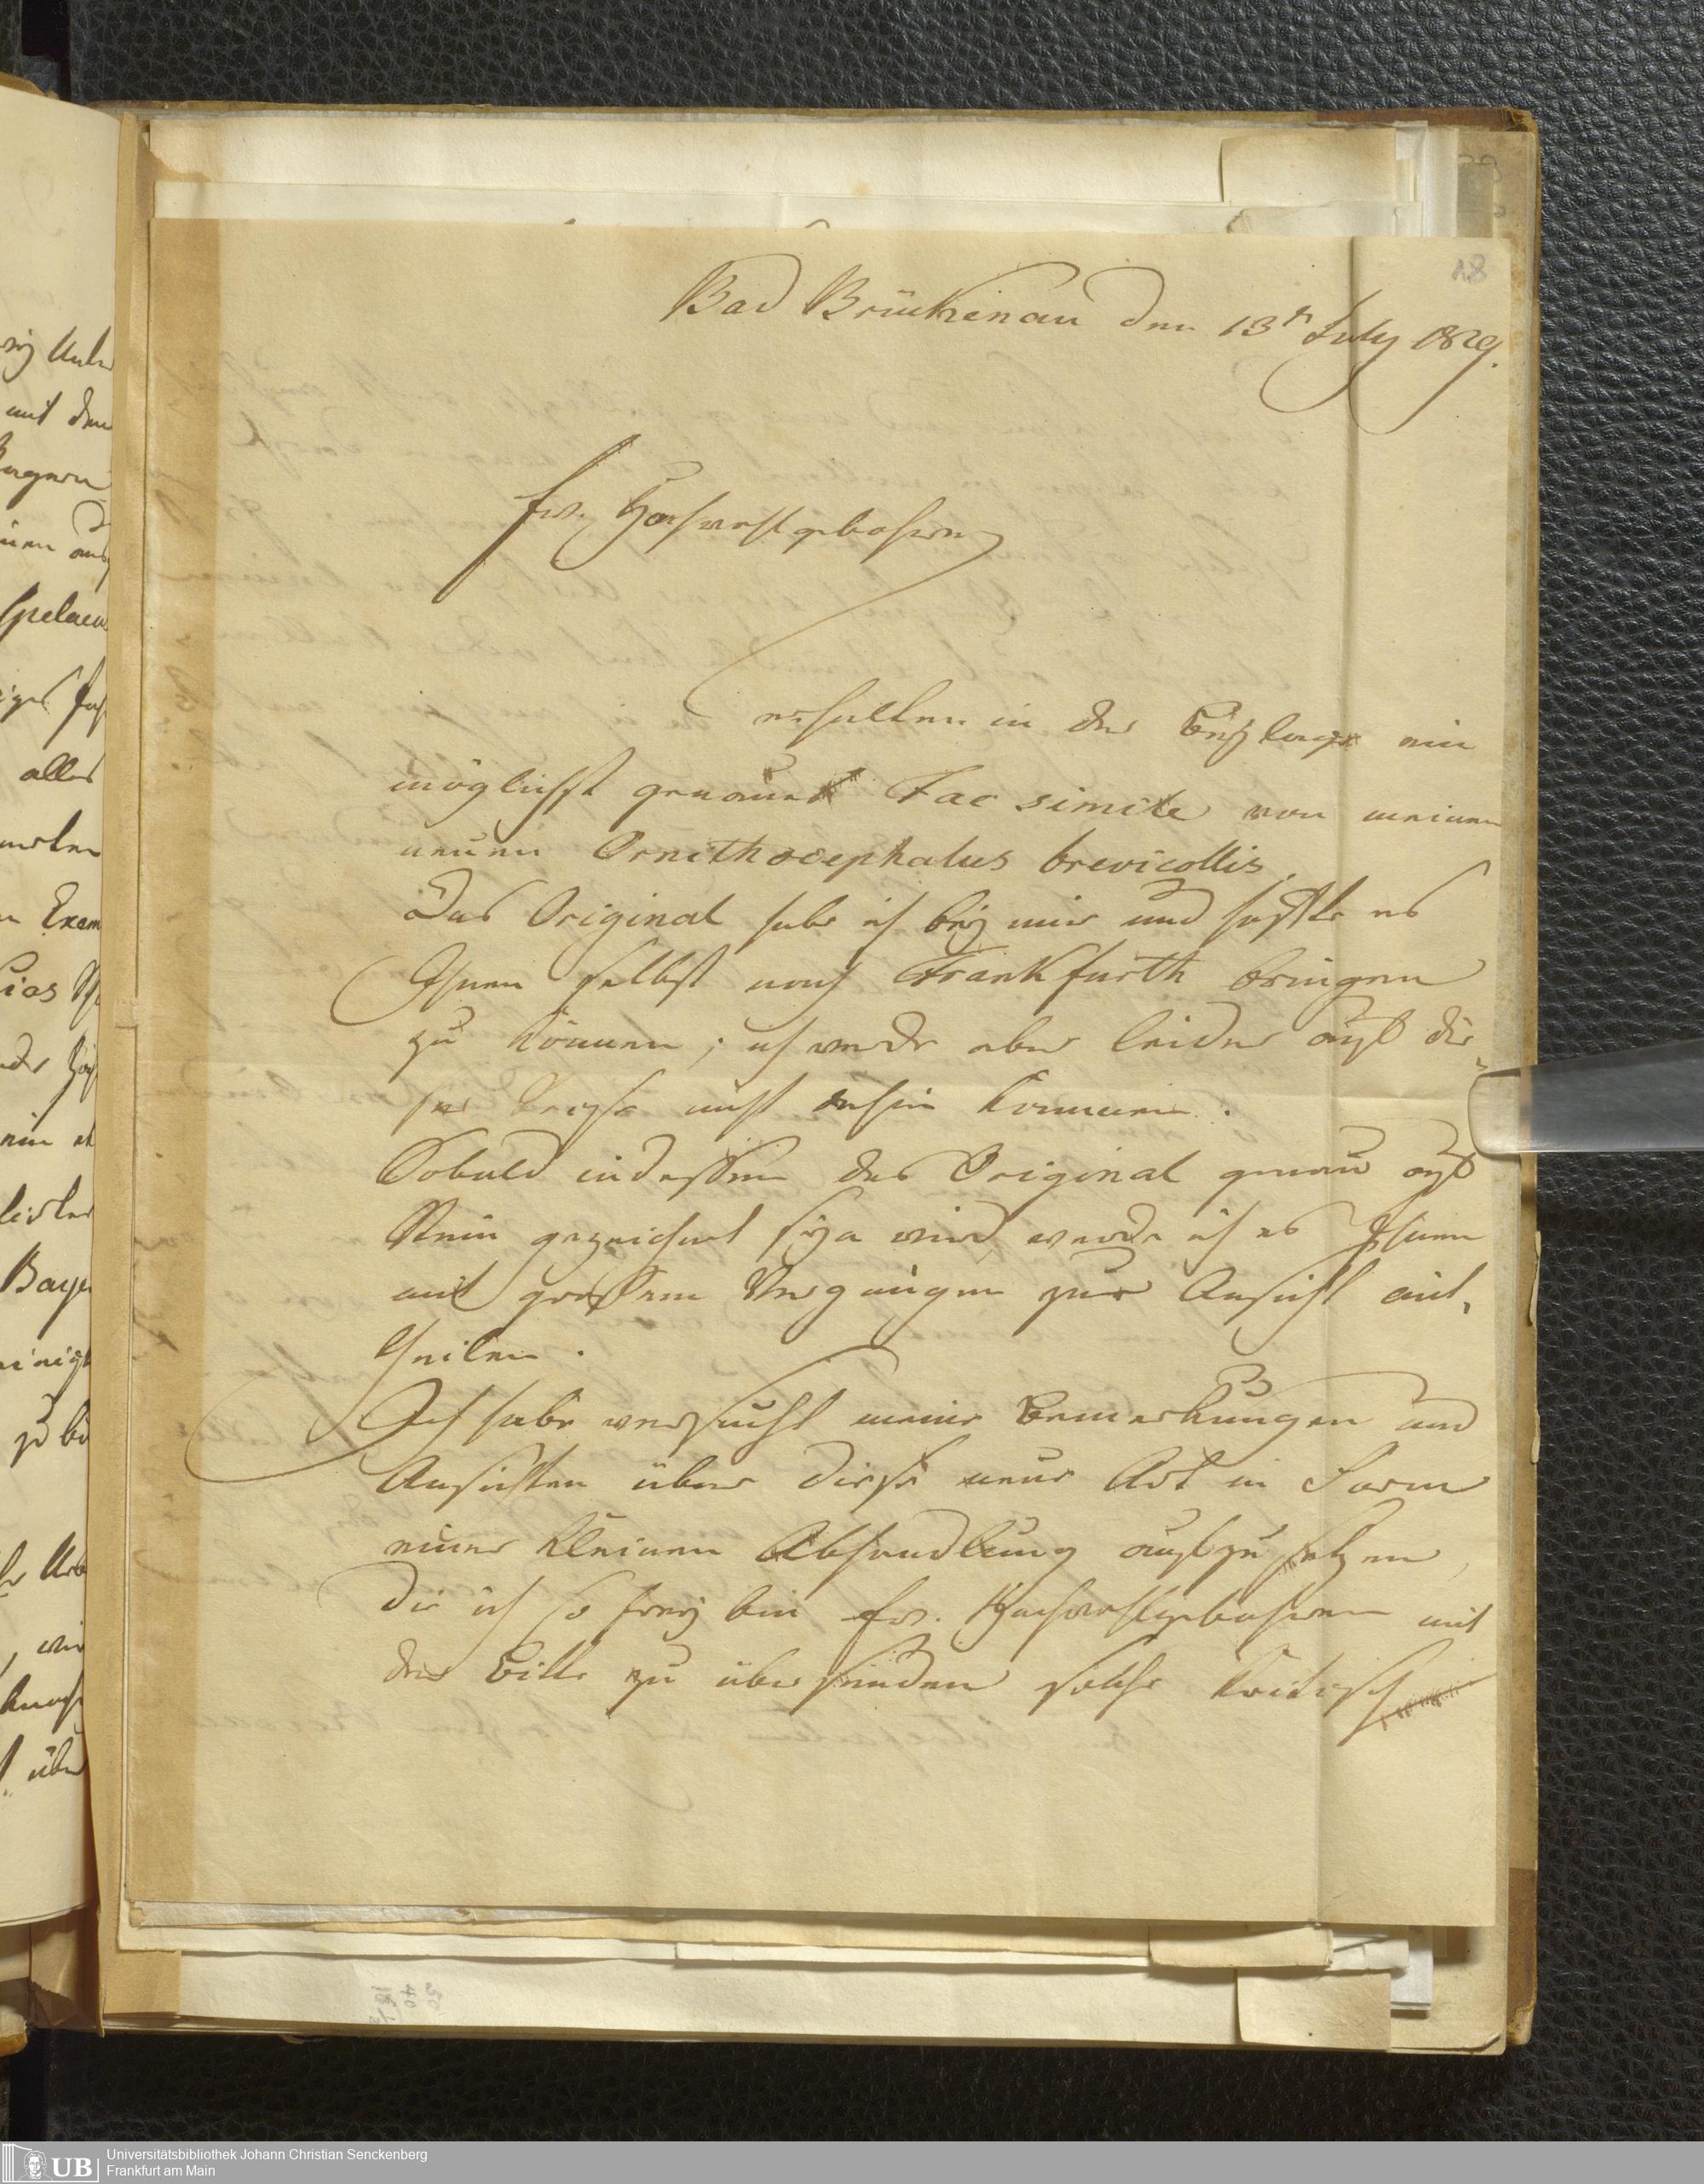 18
Bad Brückenau den 13n July 1829.
Ew. Hochwohlgebohren
erhalten in der Beylage ein
möglichst genaues Fac simile von meinem
neuen Ornithocephalus brevicollis.
Das Original habe ich bey mir und hoffte es
Ihnen selbst nach Frankfurth bringen
zu können; ich werde aber leider auf die-
ser Reise nicht dahin kommen.
Sobald indessen das Original genau auf
Stein gezeichnet seyn wird, werde ich es Ihnen
mit großem Vergnügen zur Ansicht mit-
theilen.
Ich habe versucht meine Bemerkungen und
Ansichten über diese neue Art in Form
einer kleinen Abhandlung aufzusetzen,
die ich so frey bin Ew. Hochwohlgebohren mit
der Bitte zu übersenden solche kritisch
UB
Universitätsbibliothek Johann Christian Senckenberg
Frankfurt am Main